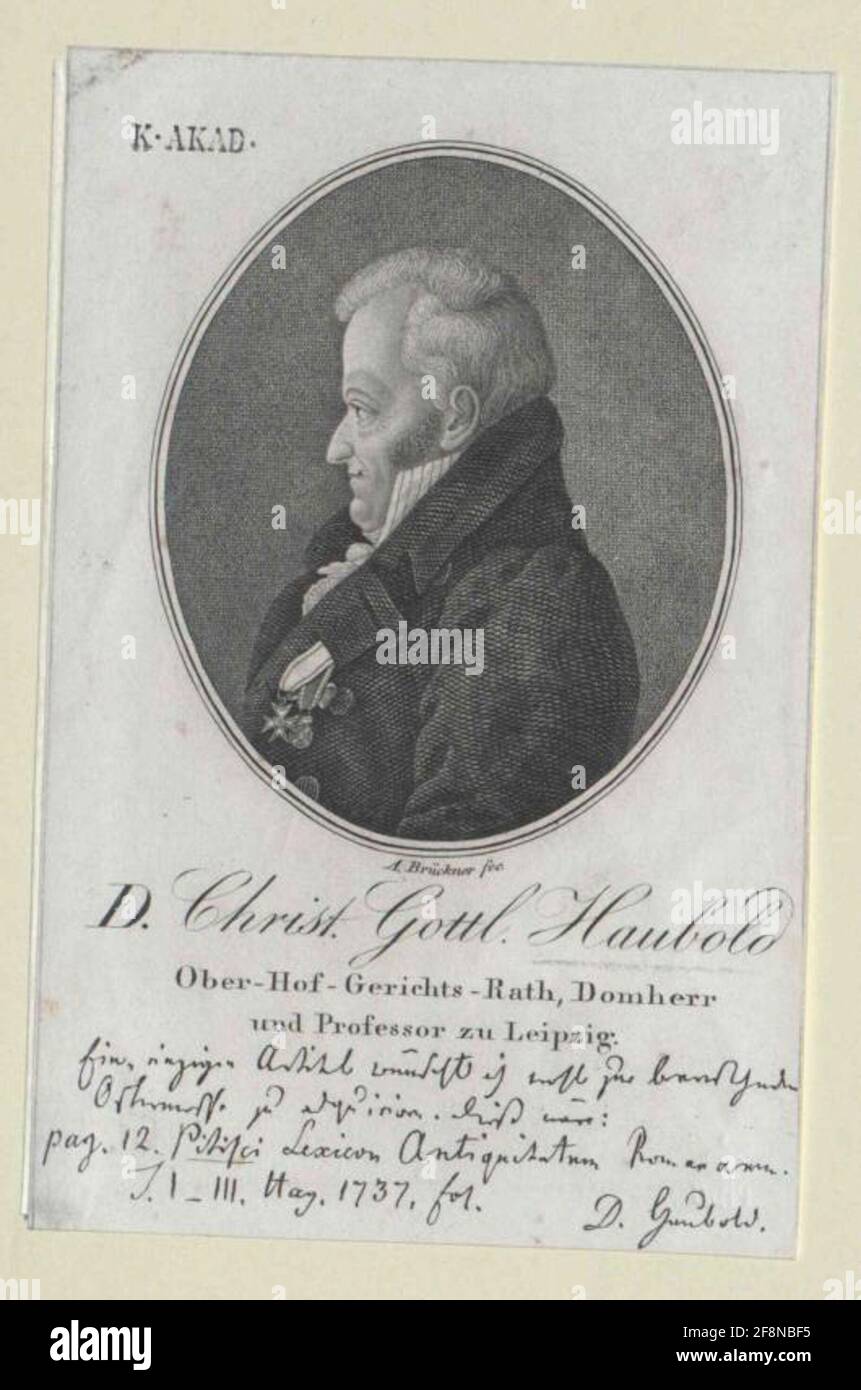 K. AKAD.
A. Brückner fec.
D. Christ. Gottl. Haubold
Ober-Hof-Gerichts-Rath, Domherr
und Professor zu Leipzig.
Einen einzigen Artikel wünscht ich wohl zur bevorstehenden
Ostermesse zu adquiriren. dieß wäre:
pag. 12. Pitisci Lexicon Antiquitatum Romanarum.
T. I-III. Hag. 1737. fol.
D. Haubold.
alamy
Image ID: 2F8NBF5
www.alamy.com